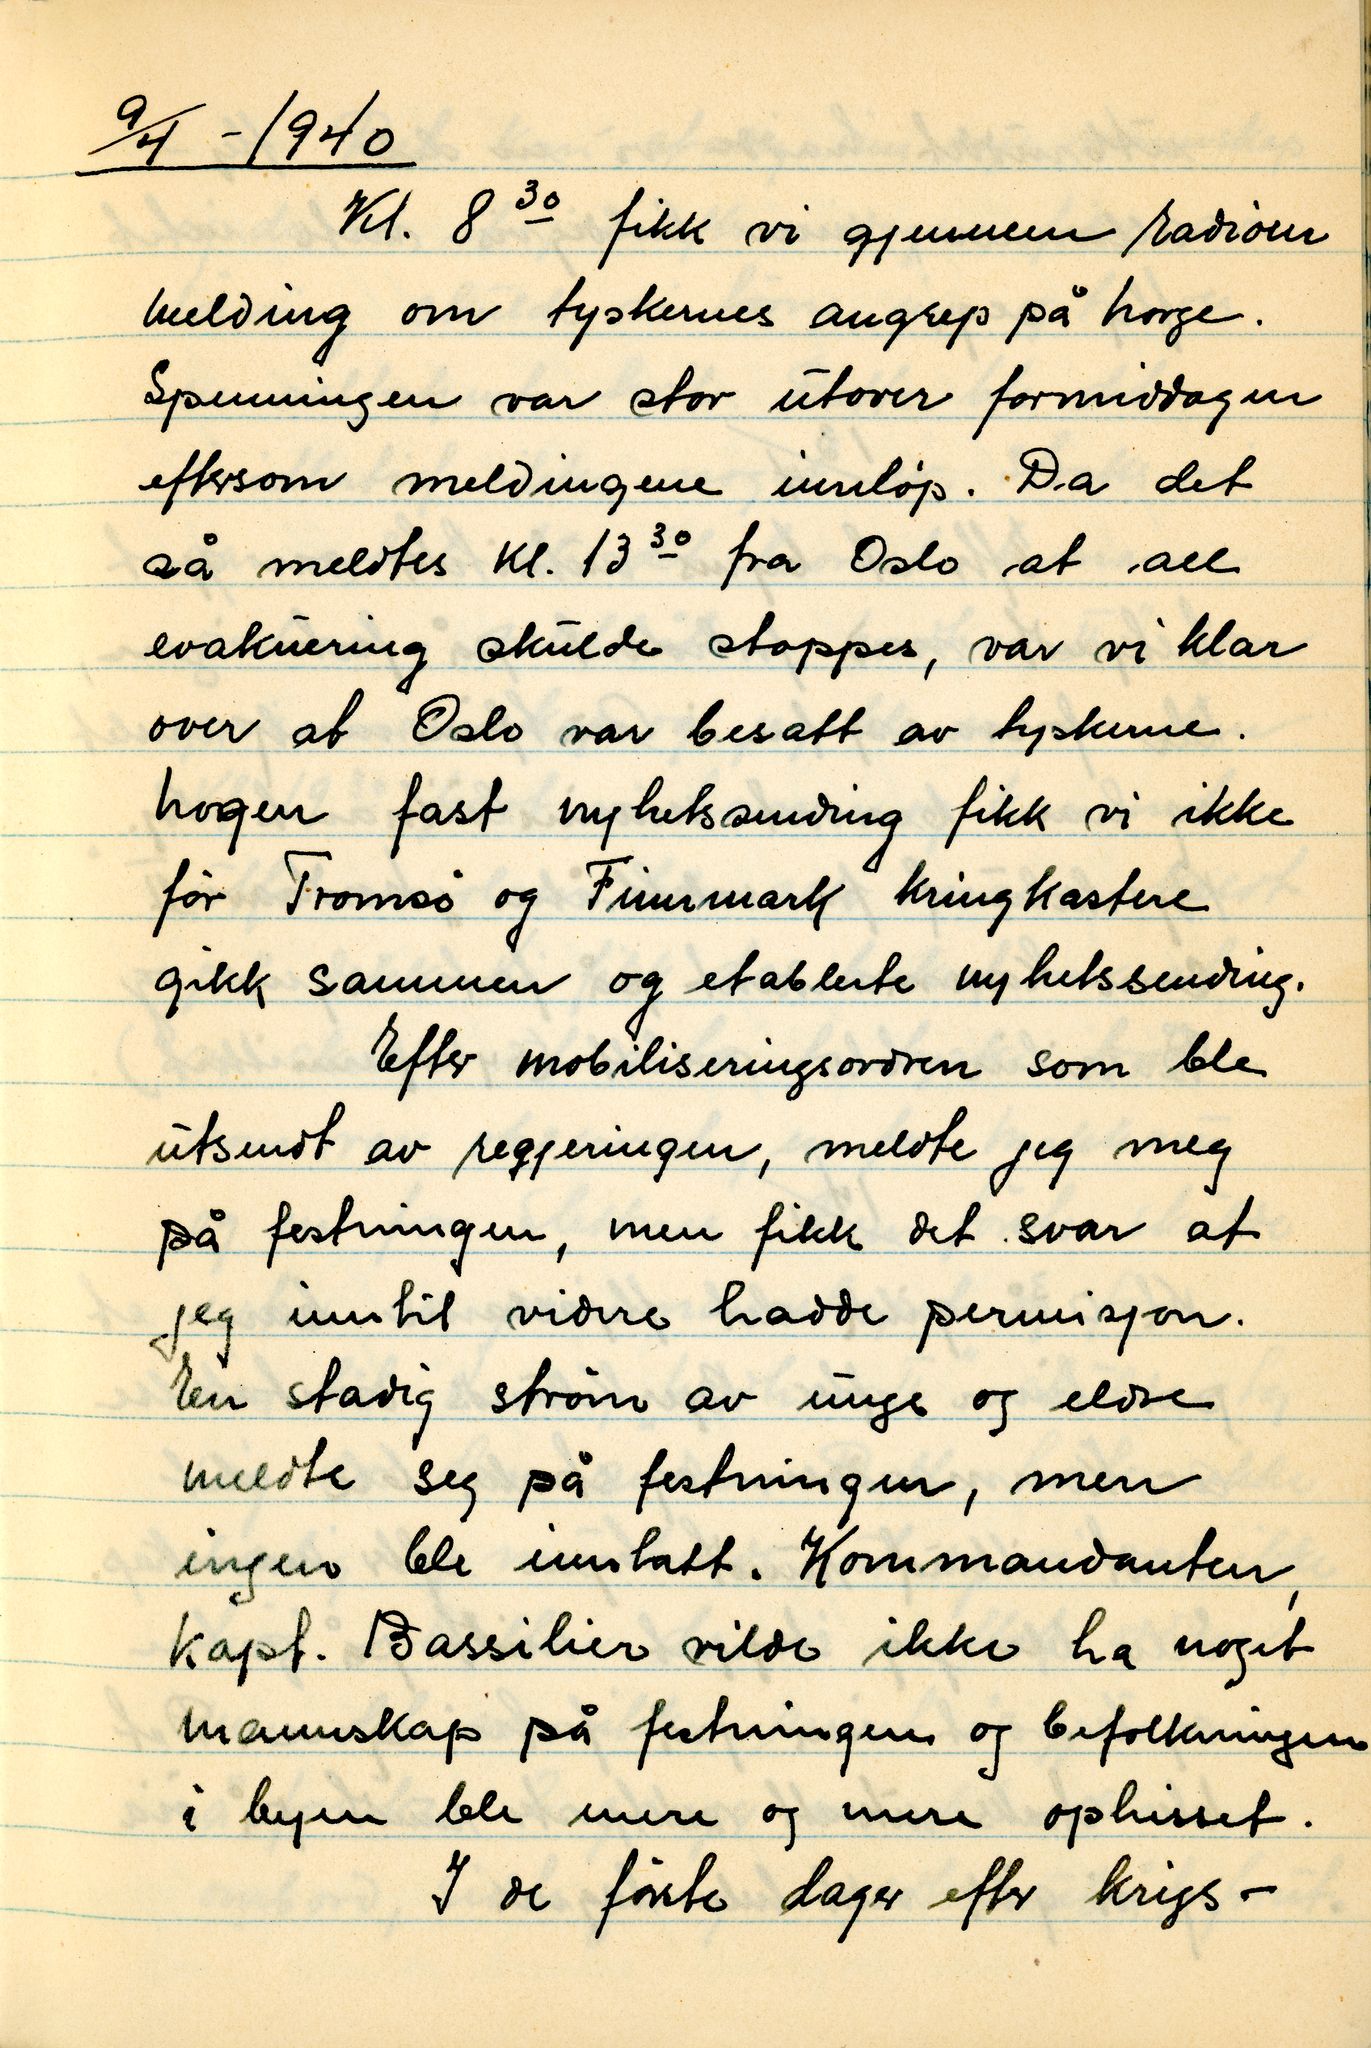 9/4 - 1940
Kl. 8 30 fikk vi gjennem radioen
melding om tyskernes angrep på Norge.
Spenningen var stor utover formiddagen
eftersom meldingene innløp. Da det
så meldtes kl. 13 30 fra Oslo at all
evakuering skulde stoppes, var vi klar
over at Oslo var besatt av tyskerne.
Nogen fast nyhetssending fikk vi ikke
før Tromsø og Finnmark kringkastere
gikk sammen og etablerte nyhetssending.
Efter mobiliseringsordren som ble
utsendt av regjeringen, meldte jeg meg
på festningen, men fikk det svar at
jeg inntil videre hadde permisjon.
En stadig strøm av unge og eldre
meldte seg på festningen, men
ingen ble inntatt. Kommandanten,
Kapt. Bassilier vilde ikke ha noget
mannskap på festningen og befolkningen
i byen ble mere og mere ophisset.
I de første dager efter krigs-